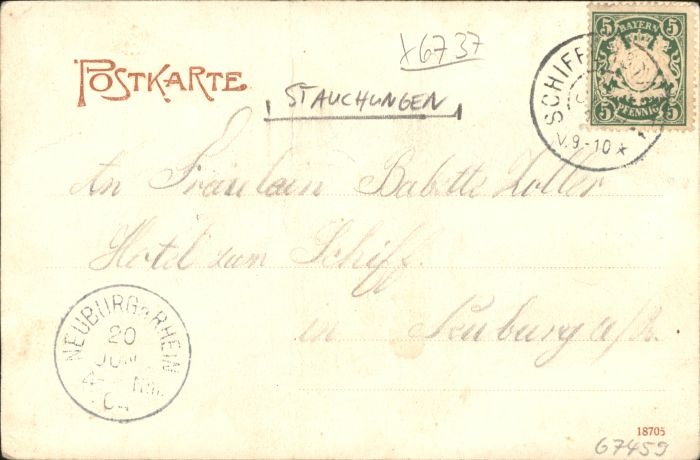 x6737
POSTKARTE
STAUCHUNGEN
BAYERN
5 5
5 PFENNIG 5
SCHIFF
V.9-10 *
An Fräulein Babette Zoller
Hotel zum Schiff.
in Neuburg a/Rh.
NEUBURG a. RHEIN
20
JUN.
04
18705
67459